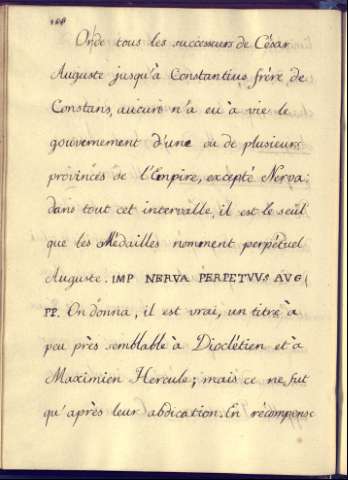 108
Or de tous les successeurs de César
Auguste jusqu'à Constantius frère de
Constans, aucun n'a eu à vie le
gouvernement d'une ou de plusieurs
provinces de l'Empire, excepté Nerva:
dans tout cet intervalle, il est le seul
que les Médailles nomment perpétuel
Auguste. IMP NERVA PERPETVVS AVG
PP. On donna, il est vrai, un titre à
peu près semblable à Dioclétien et à
Maximien Hercule; mais ce ne fut
qu'après leur abdication. En récompense